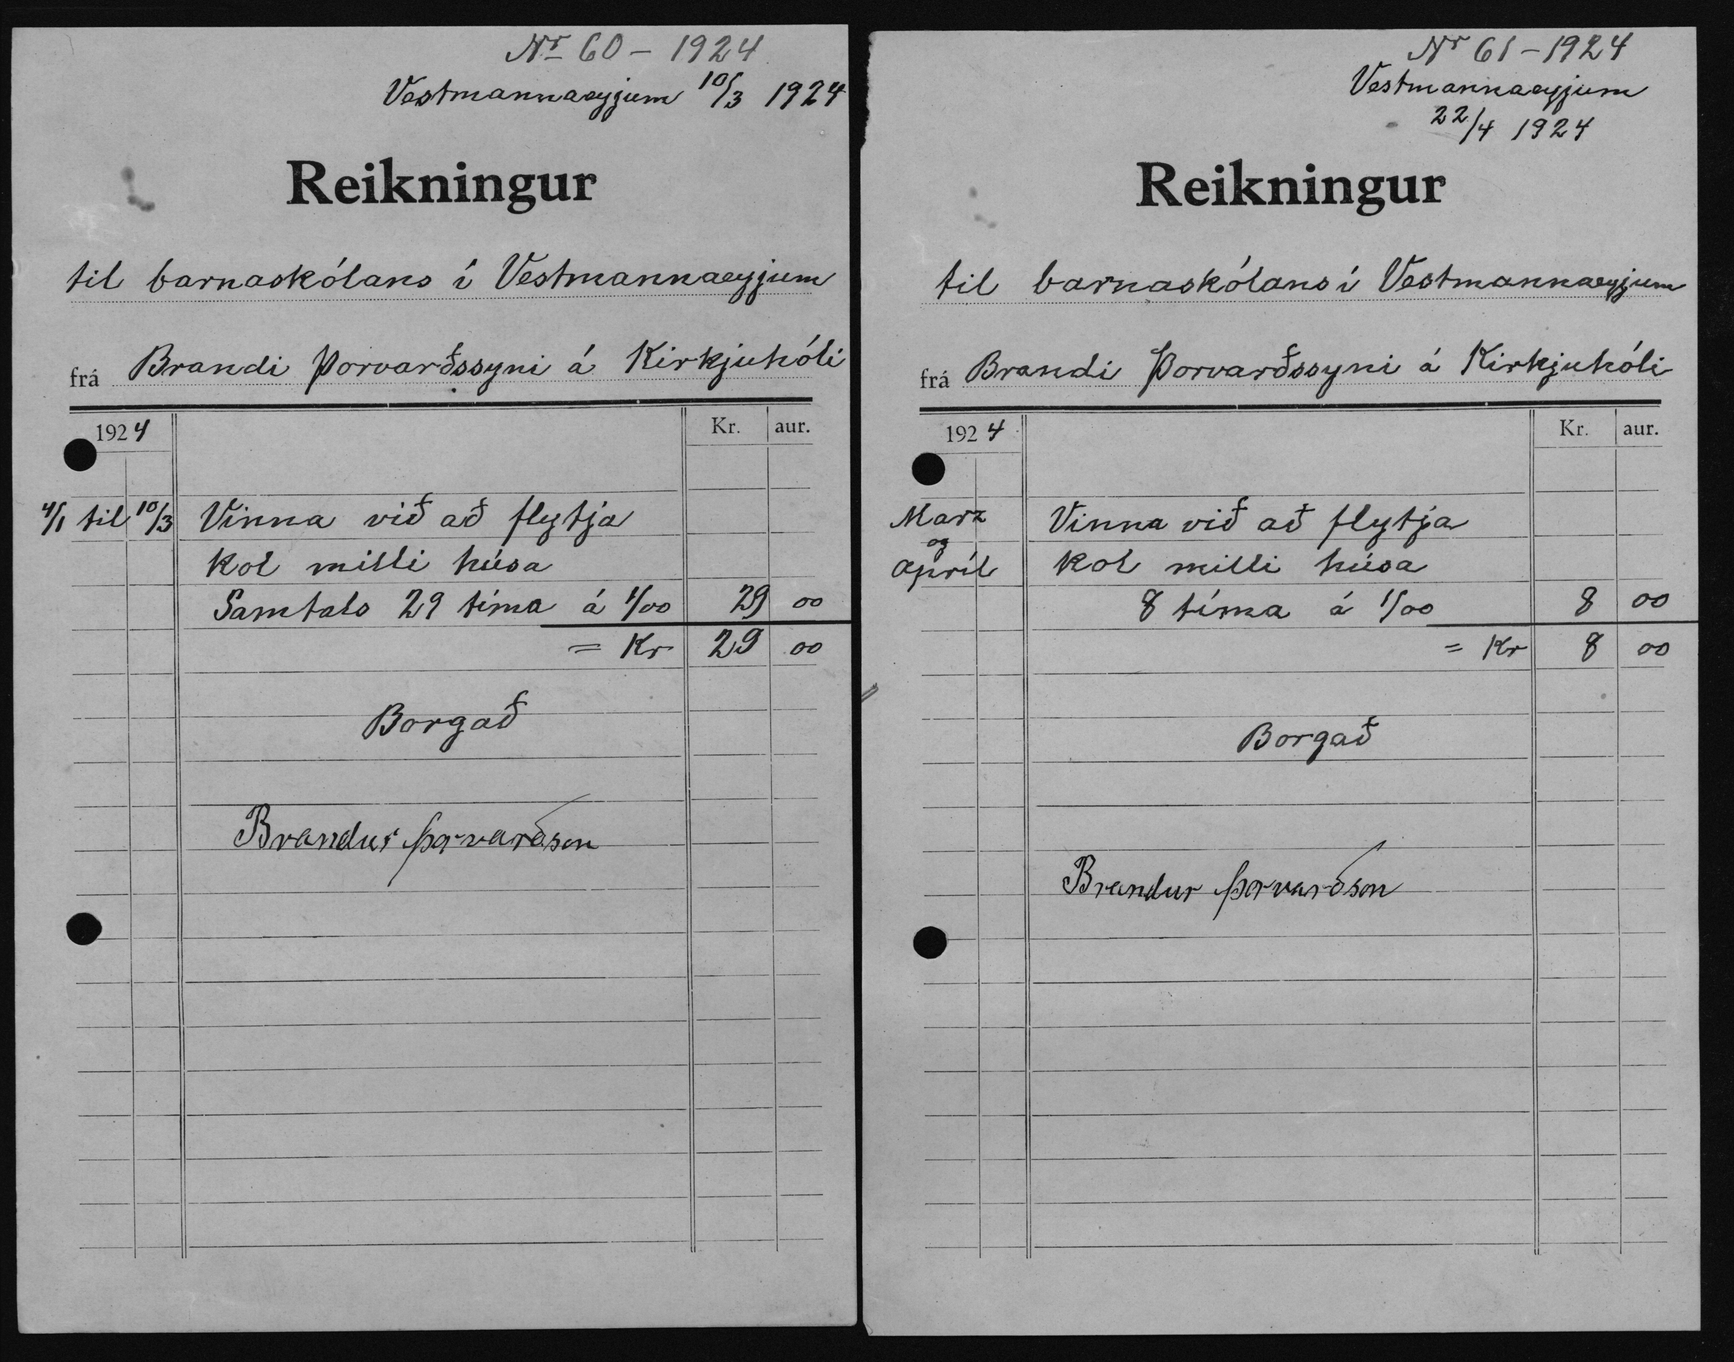 Nr 60 – 1924
Vestmannaeyjum 10/3 1924
Reikningur
til barnaskólans í Vestmannaeyjum
frá Brandi Þorvarðssyni á Kirkjuhóli
1924 Kr. aur.
4/1 til 10/3 Vinna við að flytja
kol milli húsa
Samtals 29 tíma á 1/00 29 00
= Kr 29 00
Borgað
Brandur Þorvarðson
Nr 61 – 1924
Vestmannaeyjum
22/4 1924
Reikningur
til barnaskólans í Vestmannaeyjum
frá Brandi Þorvarðssyni á Kirkjuhóli
1924 Kr. aur.
Marz Vinna við að flytja
og
Apríl kol milli húsa
8 tíma á 1/00 8 00
= Kr 8 00
Borgað
Brandur Þorvarðson